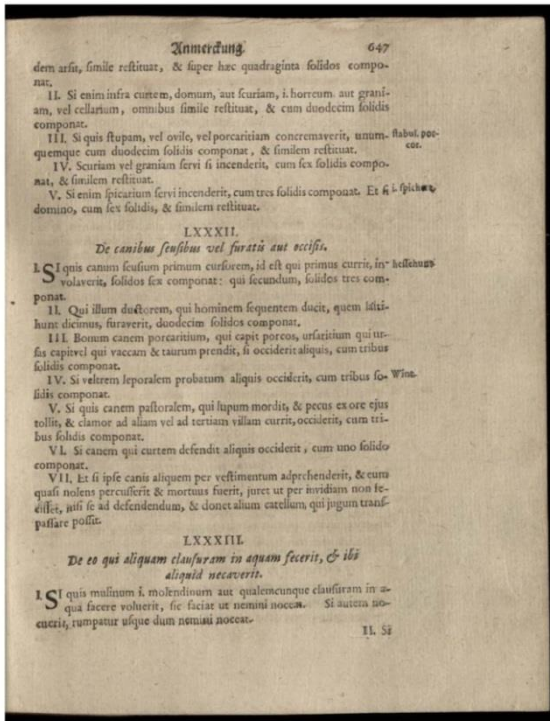 Anmerckung 647
dem arsit, simile restituat, & super hæc quadraginta solidos compo-
nat.
II. Si enim infra curtem, domum, aut scuriam, i. horreum. aut grani-
am, vel cellarium, omnibus simile restituat, & cum duodecim solidis
componat.
III. Si quis stupam, vel ovile, vel porcaritiam concremaverit, unum-
quemque cum duodecim solidis componat, & similem restituat.
stabul. por-
cor.
IV. Scuriam vel graniam servi si incenderit, cum sex solidis compo-
nat, & similem restituat.
V. Si enim spicarium servi incenderit, cum tres solidis componat. Et si
i. spicher
domino, cum sex solidis, & similem restituat.
LXXXII.
De canibus seusibus vel furatis aut occisis.
I. SI quis canum seusium primum cursorem, id est qui primus currit, in-
volaverit, solidos sex componat: qui secundum, solidos tres com-
ponat.
II. Qui illum ductorem, qui hominem sequentem ducit, quem
hunt dicimus, furaverit, duodecim solidos componat.
III. Bonum canem porcaritium, qui capit porcos, ursaritium qui ur-
sos capit vel qui vaccam & taurum prendit, si occiderit aliquis, cum tribus
solidis componat.
IV. Si veltrem leporalem probatum aliquis occiderit, cum tribus so-
lidis componat.
V. Si quis canem pastoralem, qui lupum mordit, & pecus ex ore ejus
tollit, & clamor ad aliam vel ad tertiam villam currit, occiderit, cum tri-
bus solidis componat.
VI. Si canem qui curtem defendit aliquis occiderit, cum uno solido
componat.
VII. Et si ipse canis aliquem per vestimentum adprehenderit, & eum
quasi nolens percusserit & mortuus fuerit, juret ut per invidiam non fe-
cisset, nisi se ad defendendum, & donet alium catellum, qui jugum trans-
passare possit.
LXXXIII.
De eo qui aliquam clausuram in aquam fecerit, & ibi
aliquid necaverit.
I. SI quis mulinum i. molendinum aut qualemcunque clausuram in a-
qua facere voluerit, sic faciat ut nemini noceat. Si autem no-
cuerit, rumpatur usque dum nemini noceat.
II. Si